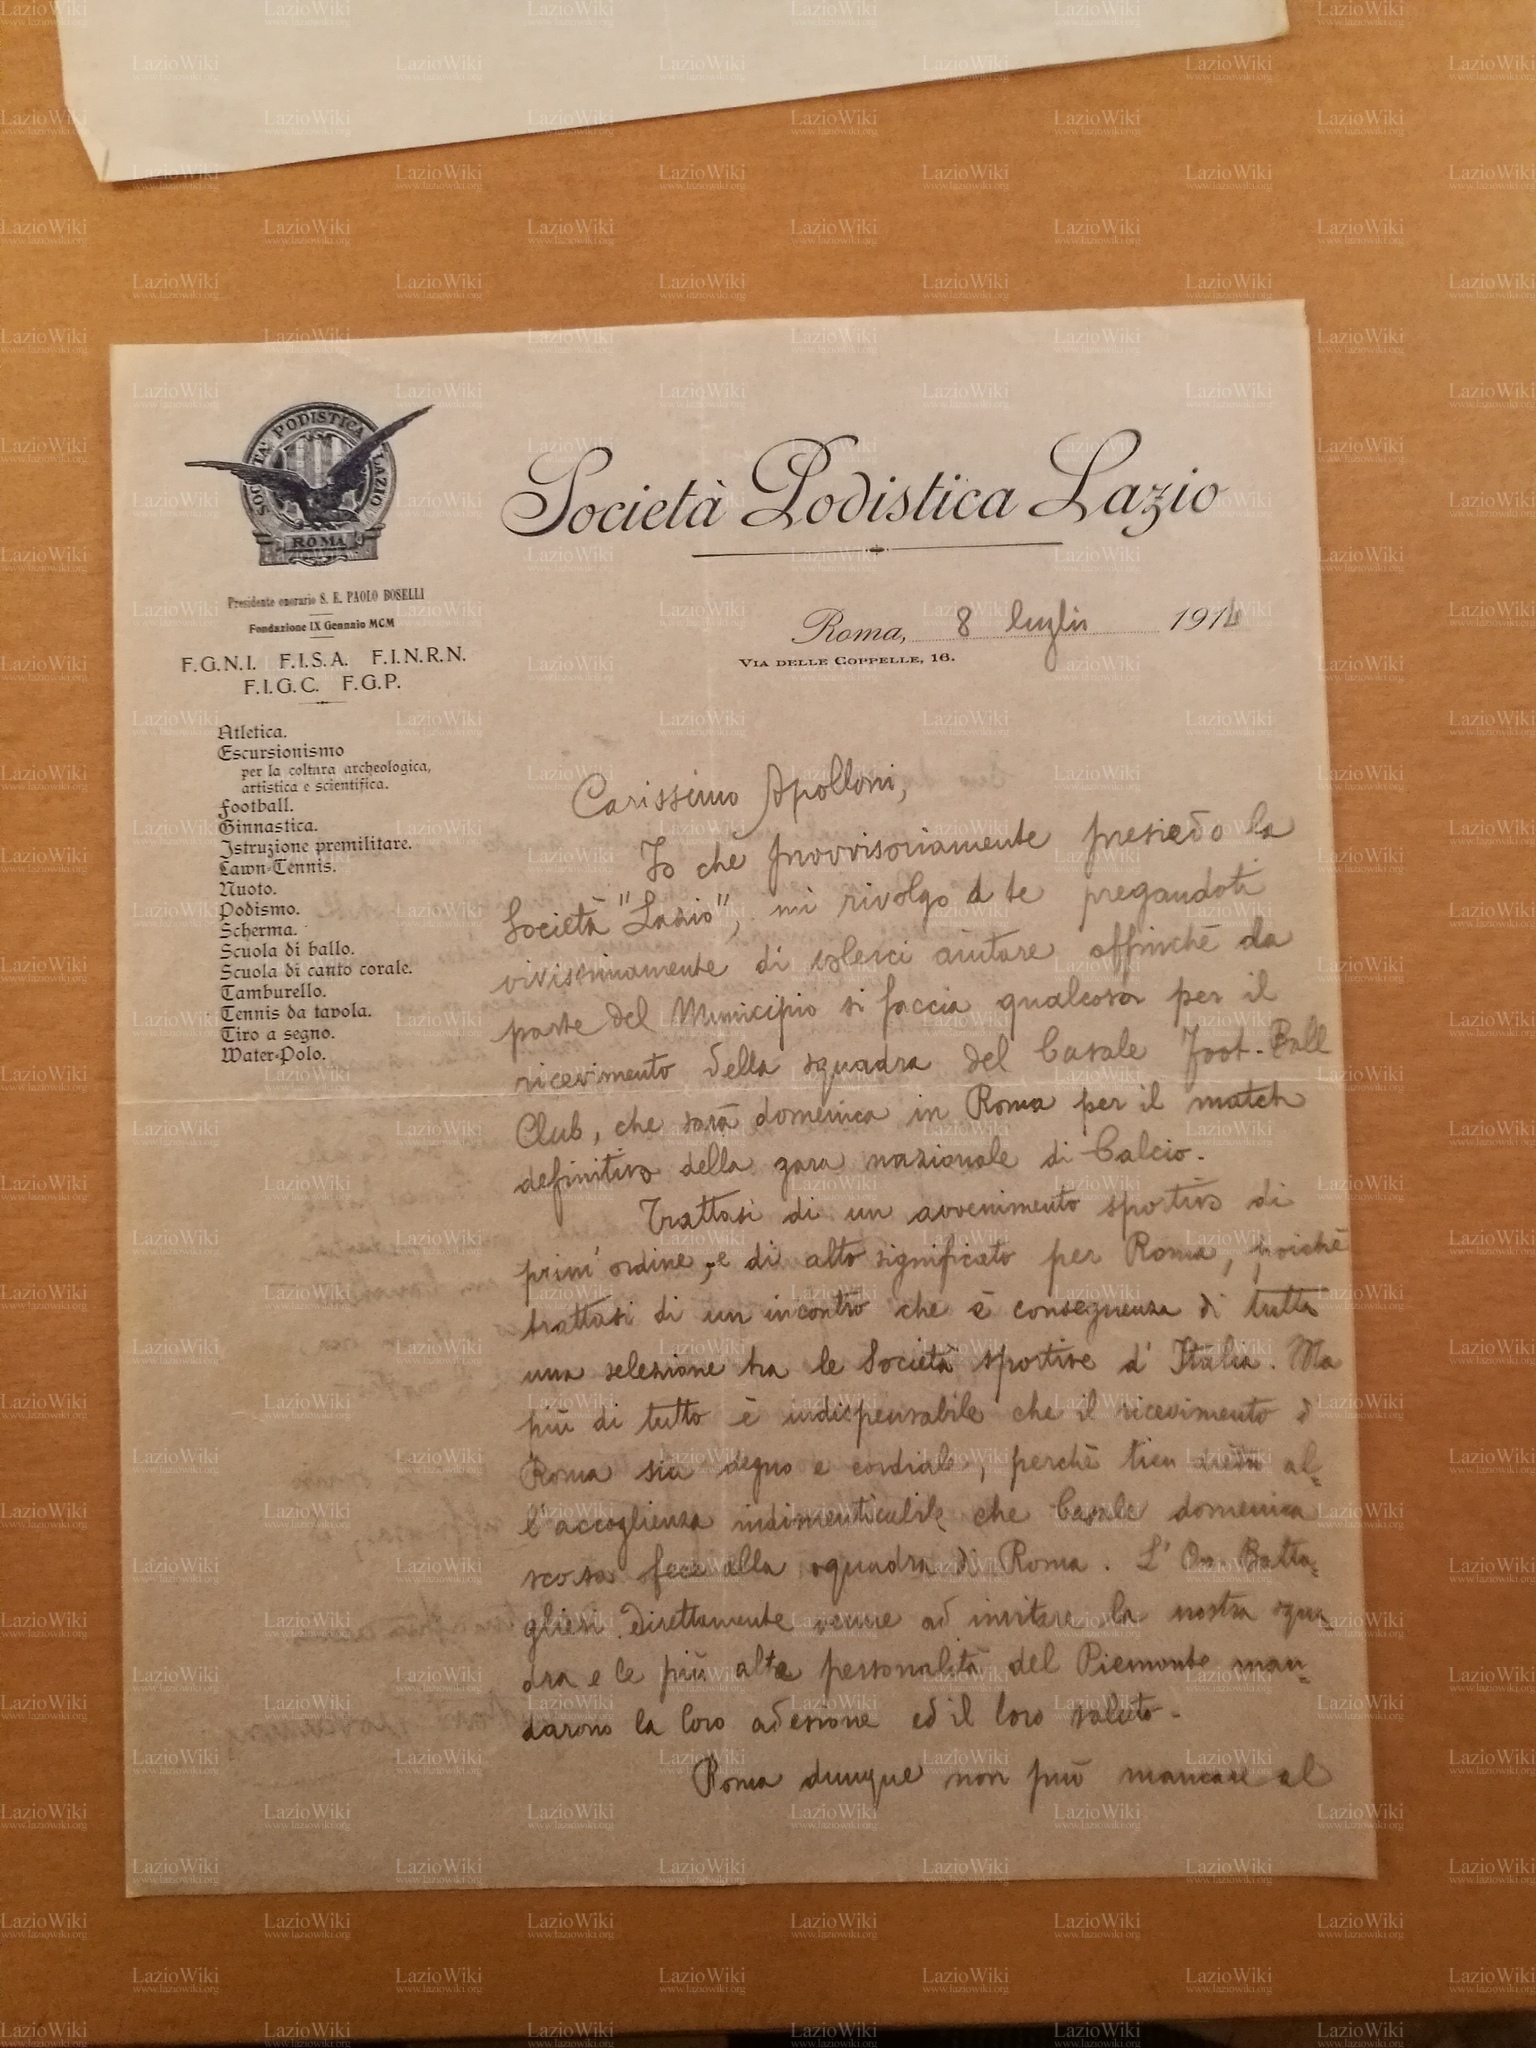 SOCIETÀ PODISTICA LAZIO
ROMA
Società Podistica Lazio
Presidente onorario S. E. PAOLO BOSELLI
Fondazione IX Gennaio MCM
F.G.N.I. F.I.S.A. F.I.N.R.N.
F.I.G.C. F.G.P.
Roma, 8 luglio 1914
VIA DELLE COPPELLE, 16.
Atletica.
Escursionismo
per la coltura archeologica,
artistica e scientifica.
Football.
Ginnastica.
Istruzione premilitare.
Lawn-Tennis.
Nuoto.
Podismo.
Scherma.
Scuola di ballo.
Scuola di canto corale.
Tamburello.
Tennis da tavola.
Tiro a segno.
Water-Polo.
Carissimo Apolloni,
Io che provvisoriamente presiedo la
Società "Lazio", mi rivolgo a te pregandoti
vivissimamente di volerci aiutare affinchè da
parte del Municipio si faccia qualcosa per il
ricevimento della squadra del Casale Foot-Ball
Club, che sarà domenica in Roma per il match
definitivo della gara nazionale di Calcio.
Trattasi di un avvenimento sportivo di
prim'ordine, e di alto significato per Roma, poichè
trattasi di un incontro che è conseguenza di tutta
una selezione tra le Società sportive d'Italia. Ma
più di tutto è indispensabile che il ricevimento di
Roma sia degno e cordiale, perchè tien dietro al-
l'accoglienza indimenticabile che Casale domenica
scorsa fece alla squadra di Roma. L'On. Batta-
glieri direttamente venne ad invitare la nostra squa
dra e le più alte personalità del Piemonte man-
darono la loro adesione ed il loro saluto.
Roma dunque non può mancare al
LazioWiki
www.laziowiki.org